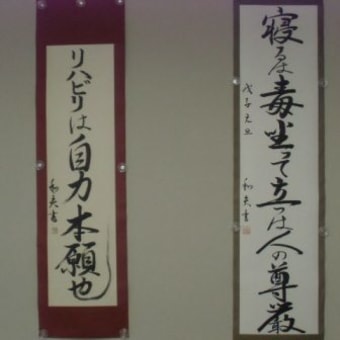 寝るは毒坐って立つは人の尊厳
戊子元旦
和夫書
リハビリは自力本願也
和夫書